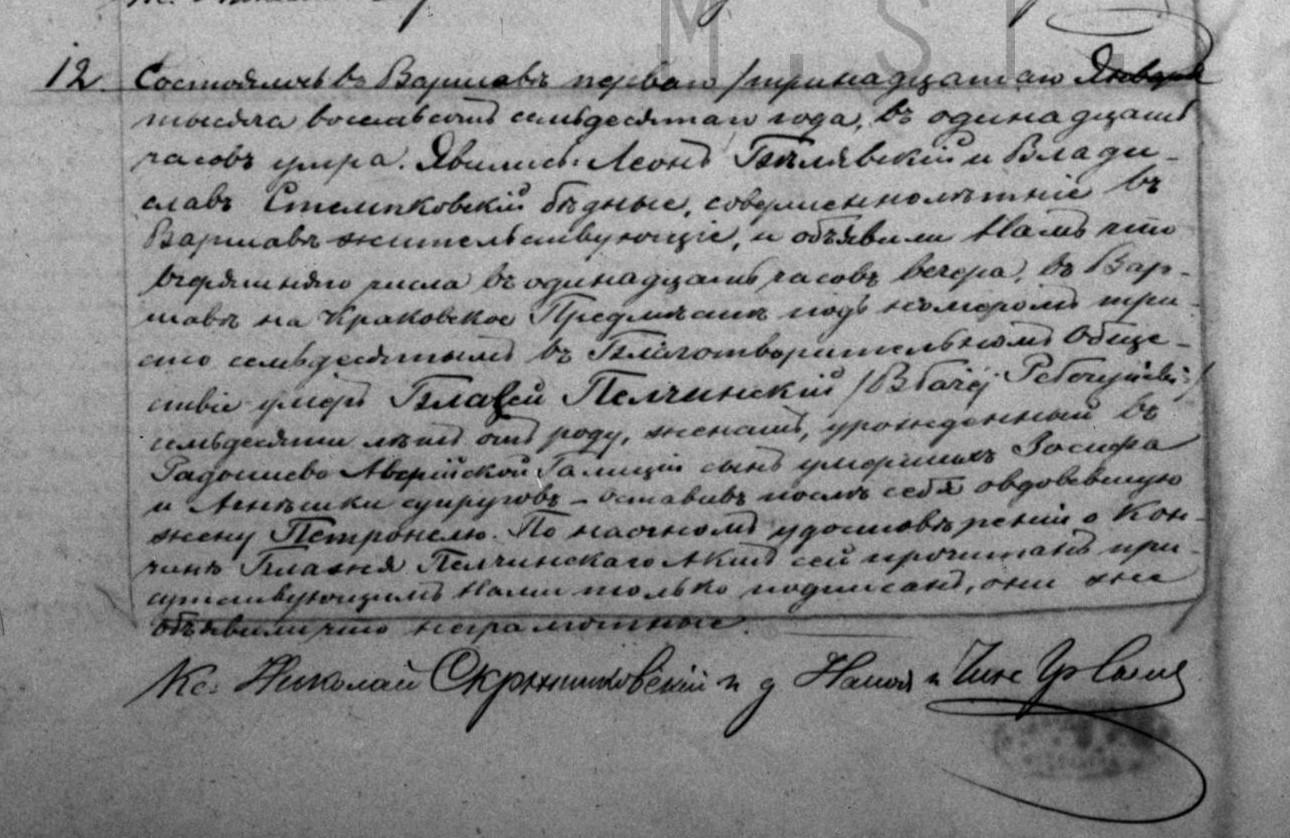 12. Состоялось въ Варшавѣ перваго /тринадцатаго Января
тысяча восемьсотъ семьдесятаго года, въ одинадцать
часовъ утра. Явились: Леонъ Бѣлявскій и Влади-
славъ Стемпковскій бѣдные, совершеннолѣтніе въ
Варшавѣ жительствующіе, и объявили Намъ что
вчерашняго числа въ одинадцать часовъ вечера, въ Вар-
шавѣ на Краковское Предмѣстьѣ подъ номеромъ три-
ста семьдесятымъ въ Благотворительномъ Обще-
ствѣ умеръ Блажей Пелчинскій
семьдесяти лѣтъ отъ роду, женатъ, урожденный въ
Австрійской Галиціи сынъ умершихъ Іосифа
и Агнѣшки супруговъ – оставивъ послѣ себя овдовѣвшую
жену Петронелю. По наочномъ удостовѣреніи о Кон-
чинѣ Блажея Пелчинскаго Актъ сей прочитанъ при-
сутствующимъ Нами только подписанъ, они же
объявили что неграмотные.
Кс. Николай н д
M. S. I.